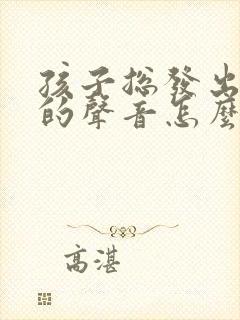 孩子總發出
的聲音怎麼
高湛